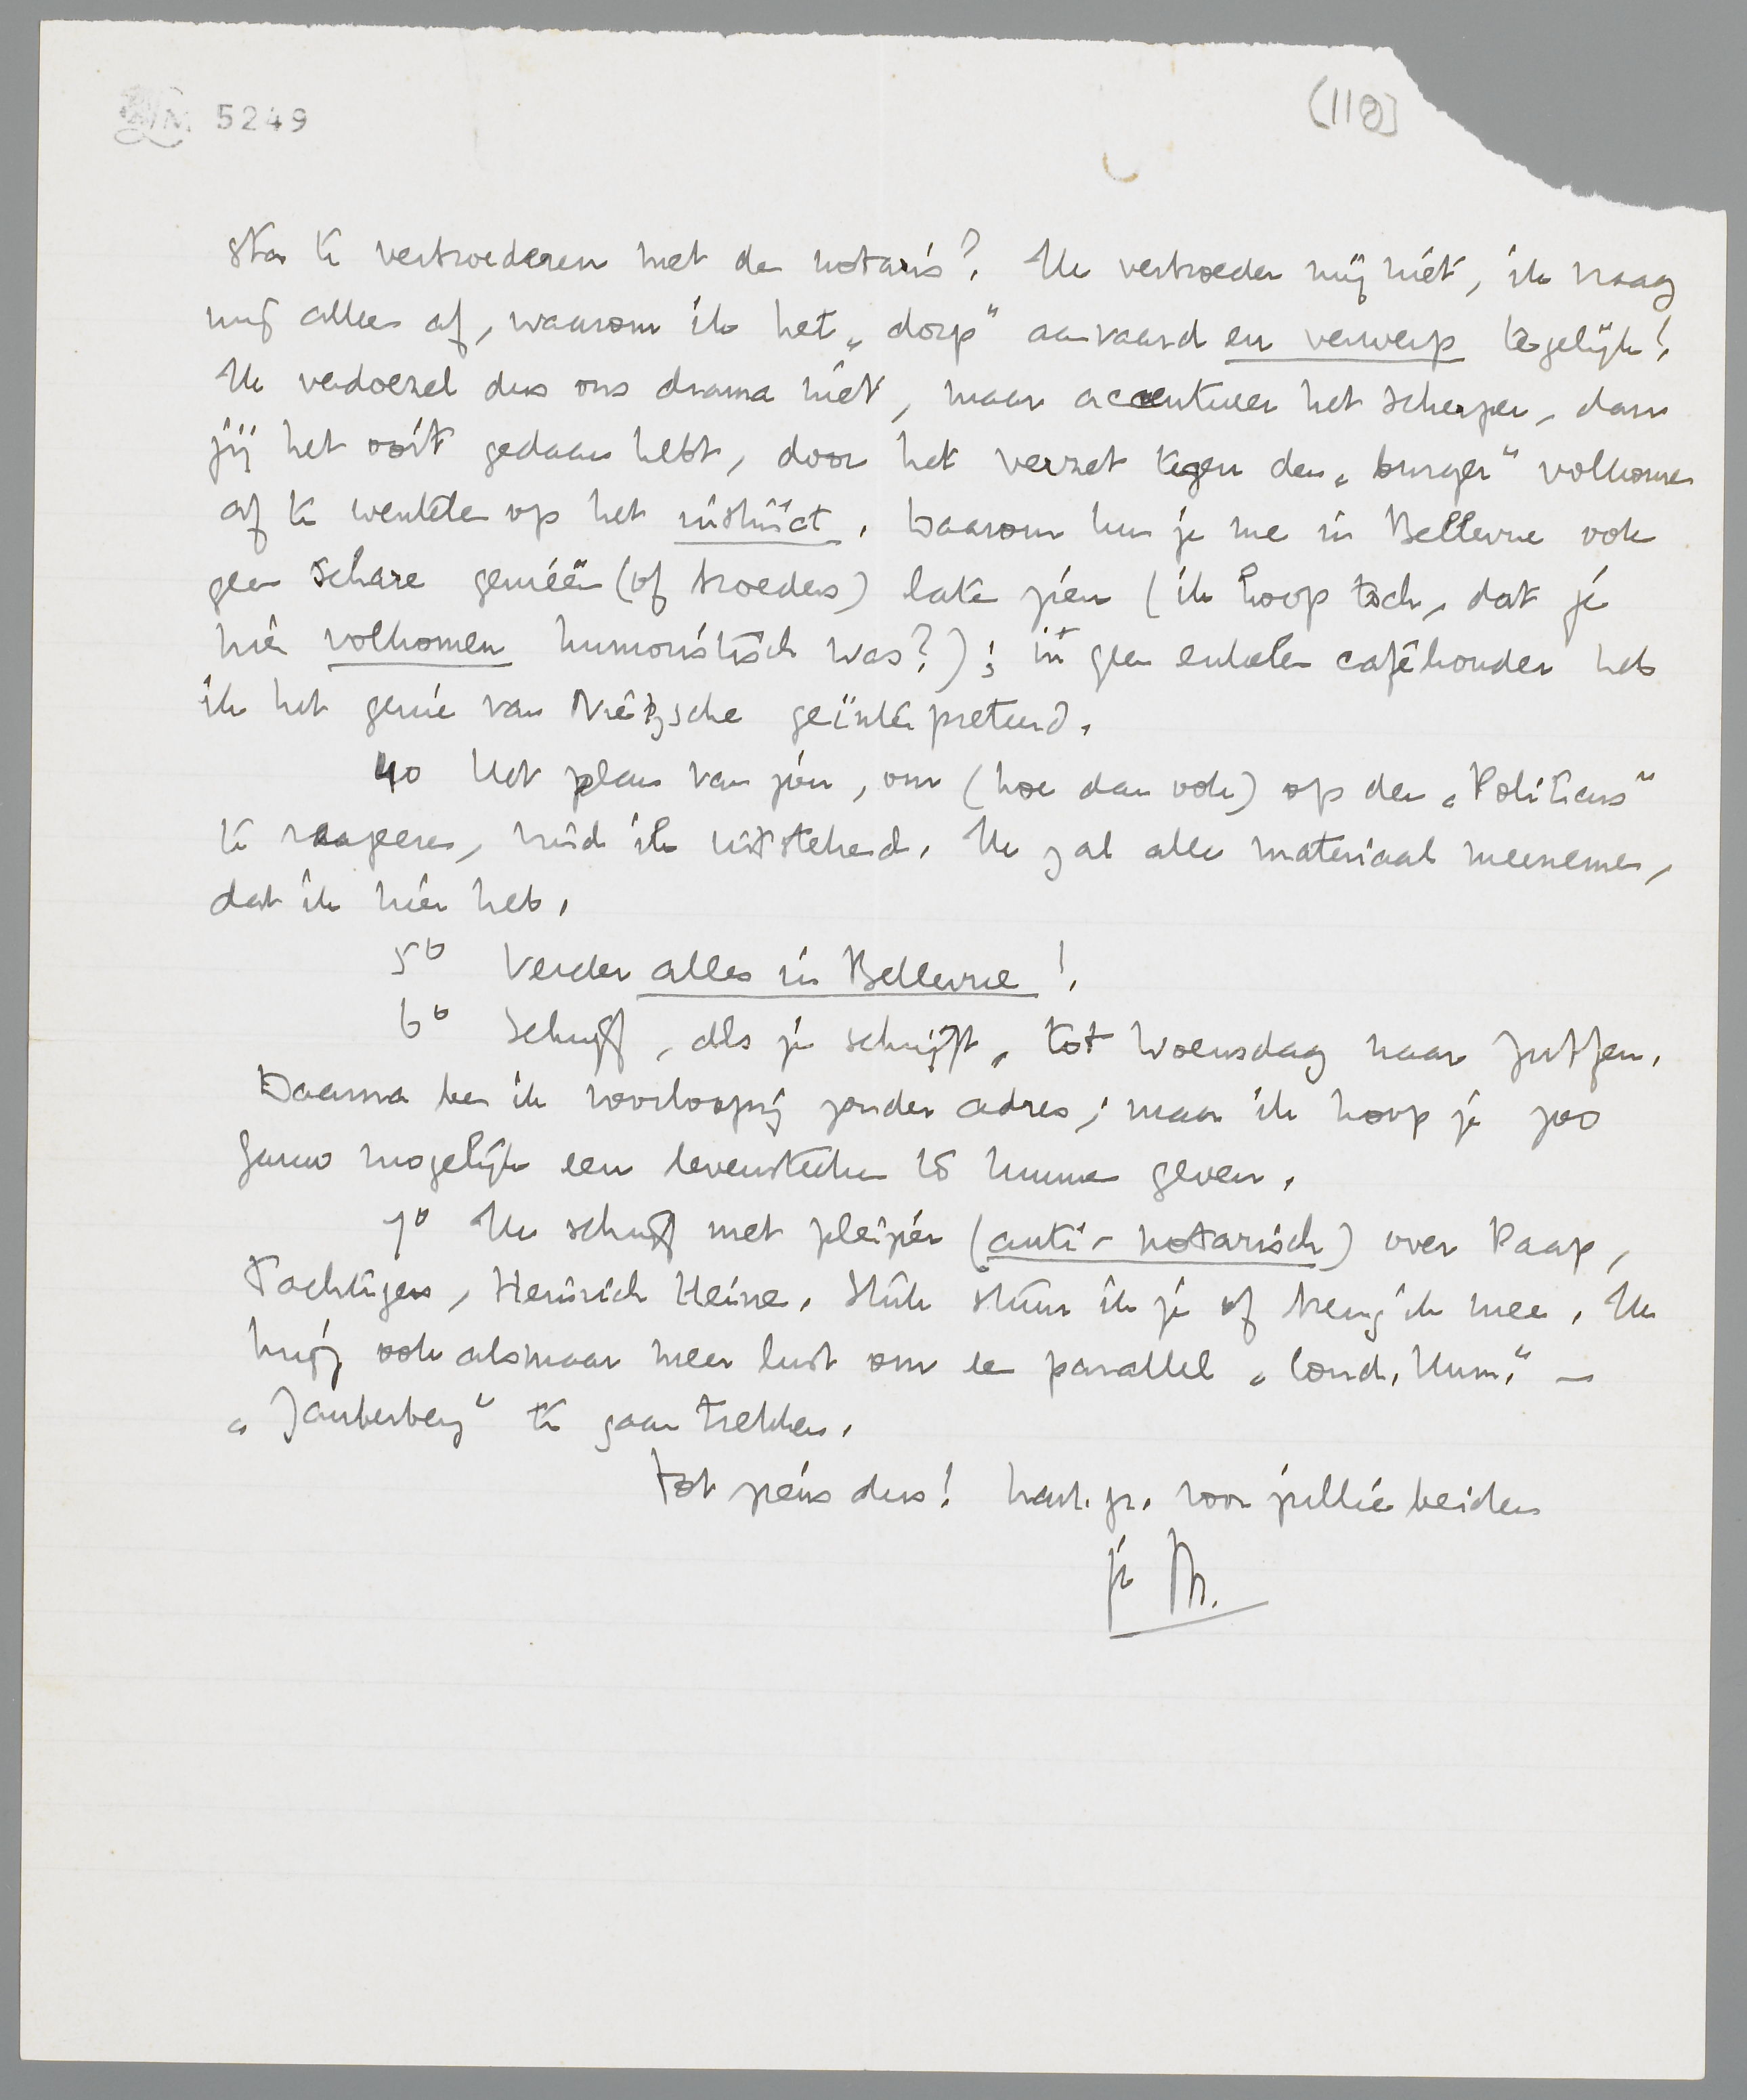 5249
(118)
sta te verbroederen met den notaris? Ik verbroeder mij niet, ik vraag
mij alleen af, waarom ik het „dorp" aanvaard en verwerp tegelijk!
Ik verdoezel dus ons drama niet, maar accentueer het scherper, dan
jij het ooit gedaan hebt, door het verzet tegen den „burger" volkomen
af te wentelen op het instinct. Daarom kun je me in Bellevue ook
geen schare genieën (of broeders) laten zien (ik hoop toch, dat je
hier volkomen humoristisch was?); in geen enkelen caféhouder heb
ik het genie van Nietzsche geïnterpreteerd.
4o Het plan van jou, om (hoe dan ook) op den „Politicus"
te reageeren, vind ik uitstekend. Ik zal alle materiaal meenemen,
dat ik hier heb.
5o Verder alles in Bellevue!
6o Schrijf, als je schrijft, tot Woensdag naar Zutfen.
Daarna ben ik voorloopig zonder adres; maar ik hoop je zoo
gauw mogelijk een levensteeken te kunnen geven.
7o Ik schrijf met pleizier (anti-notarisch) over Paap,
Tachtigers, Heinrich Heine. Stuk stuur ik je of breng ik mee. Ik
krijg ook alsmaar meer lust om een parallel „Cond. Hum." –
„Zauberberg" te gaan trekken.
Tot ziens dus! hart. gr. voor jullie beiden
je M.